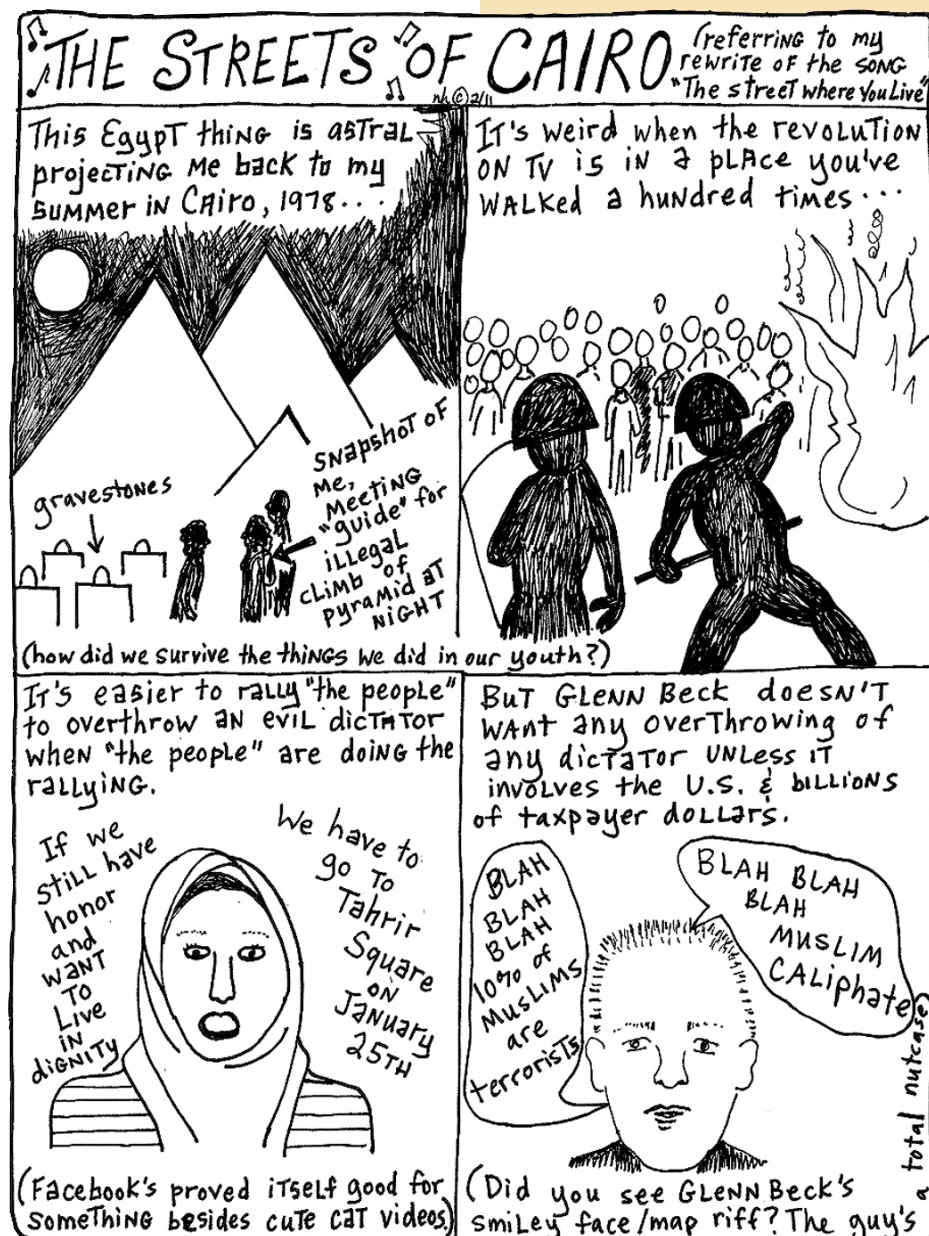 THE STREETS OF CAIRO
(referring to my
rewrite of the song
"The street where you Live"
nh © 2/11
This Egypt thing is astral
projecting me back to my
summer in Cairo, 1978....
gravestones
snapshot of
me,
meeting
"guide" for
illegal
climb of
pyramid at
night
(how did we survive the things we did in our youth?)
It's weird when the revolution
on TV is in a place you've
walked a hundred times...
It's easier to rally "the people"
to overthrow an evil dictator
when "the people" are doing the
rallying.
If we
still have
honor
and
want
to
Live
in
dignity
We have to
go to
Tahrir
Square
on
January
25th
(Facebook's proved itself good for
something besides cute cat videos.)
But Glenn Beck doesn't
want any overthrowing of
any dictator unless it
involves the U.S. & billions
of taxpayer dollars.
BLAH
BLAH
BLAH
10% of
Muslims
are
terrorists
BLAH BLAH
BLAH
MUSLIM
CALiphate
(Did you see Glenn Beck's
smiley face/map riff? The guy's
a total nutcase)